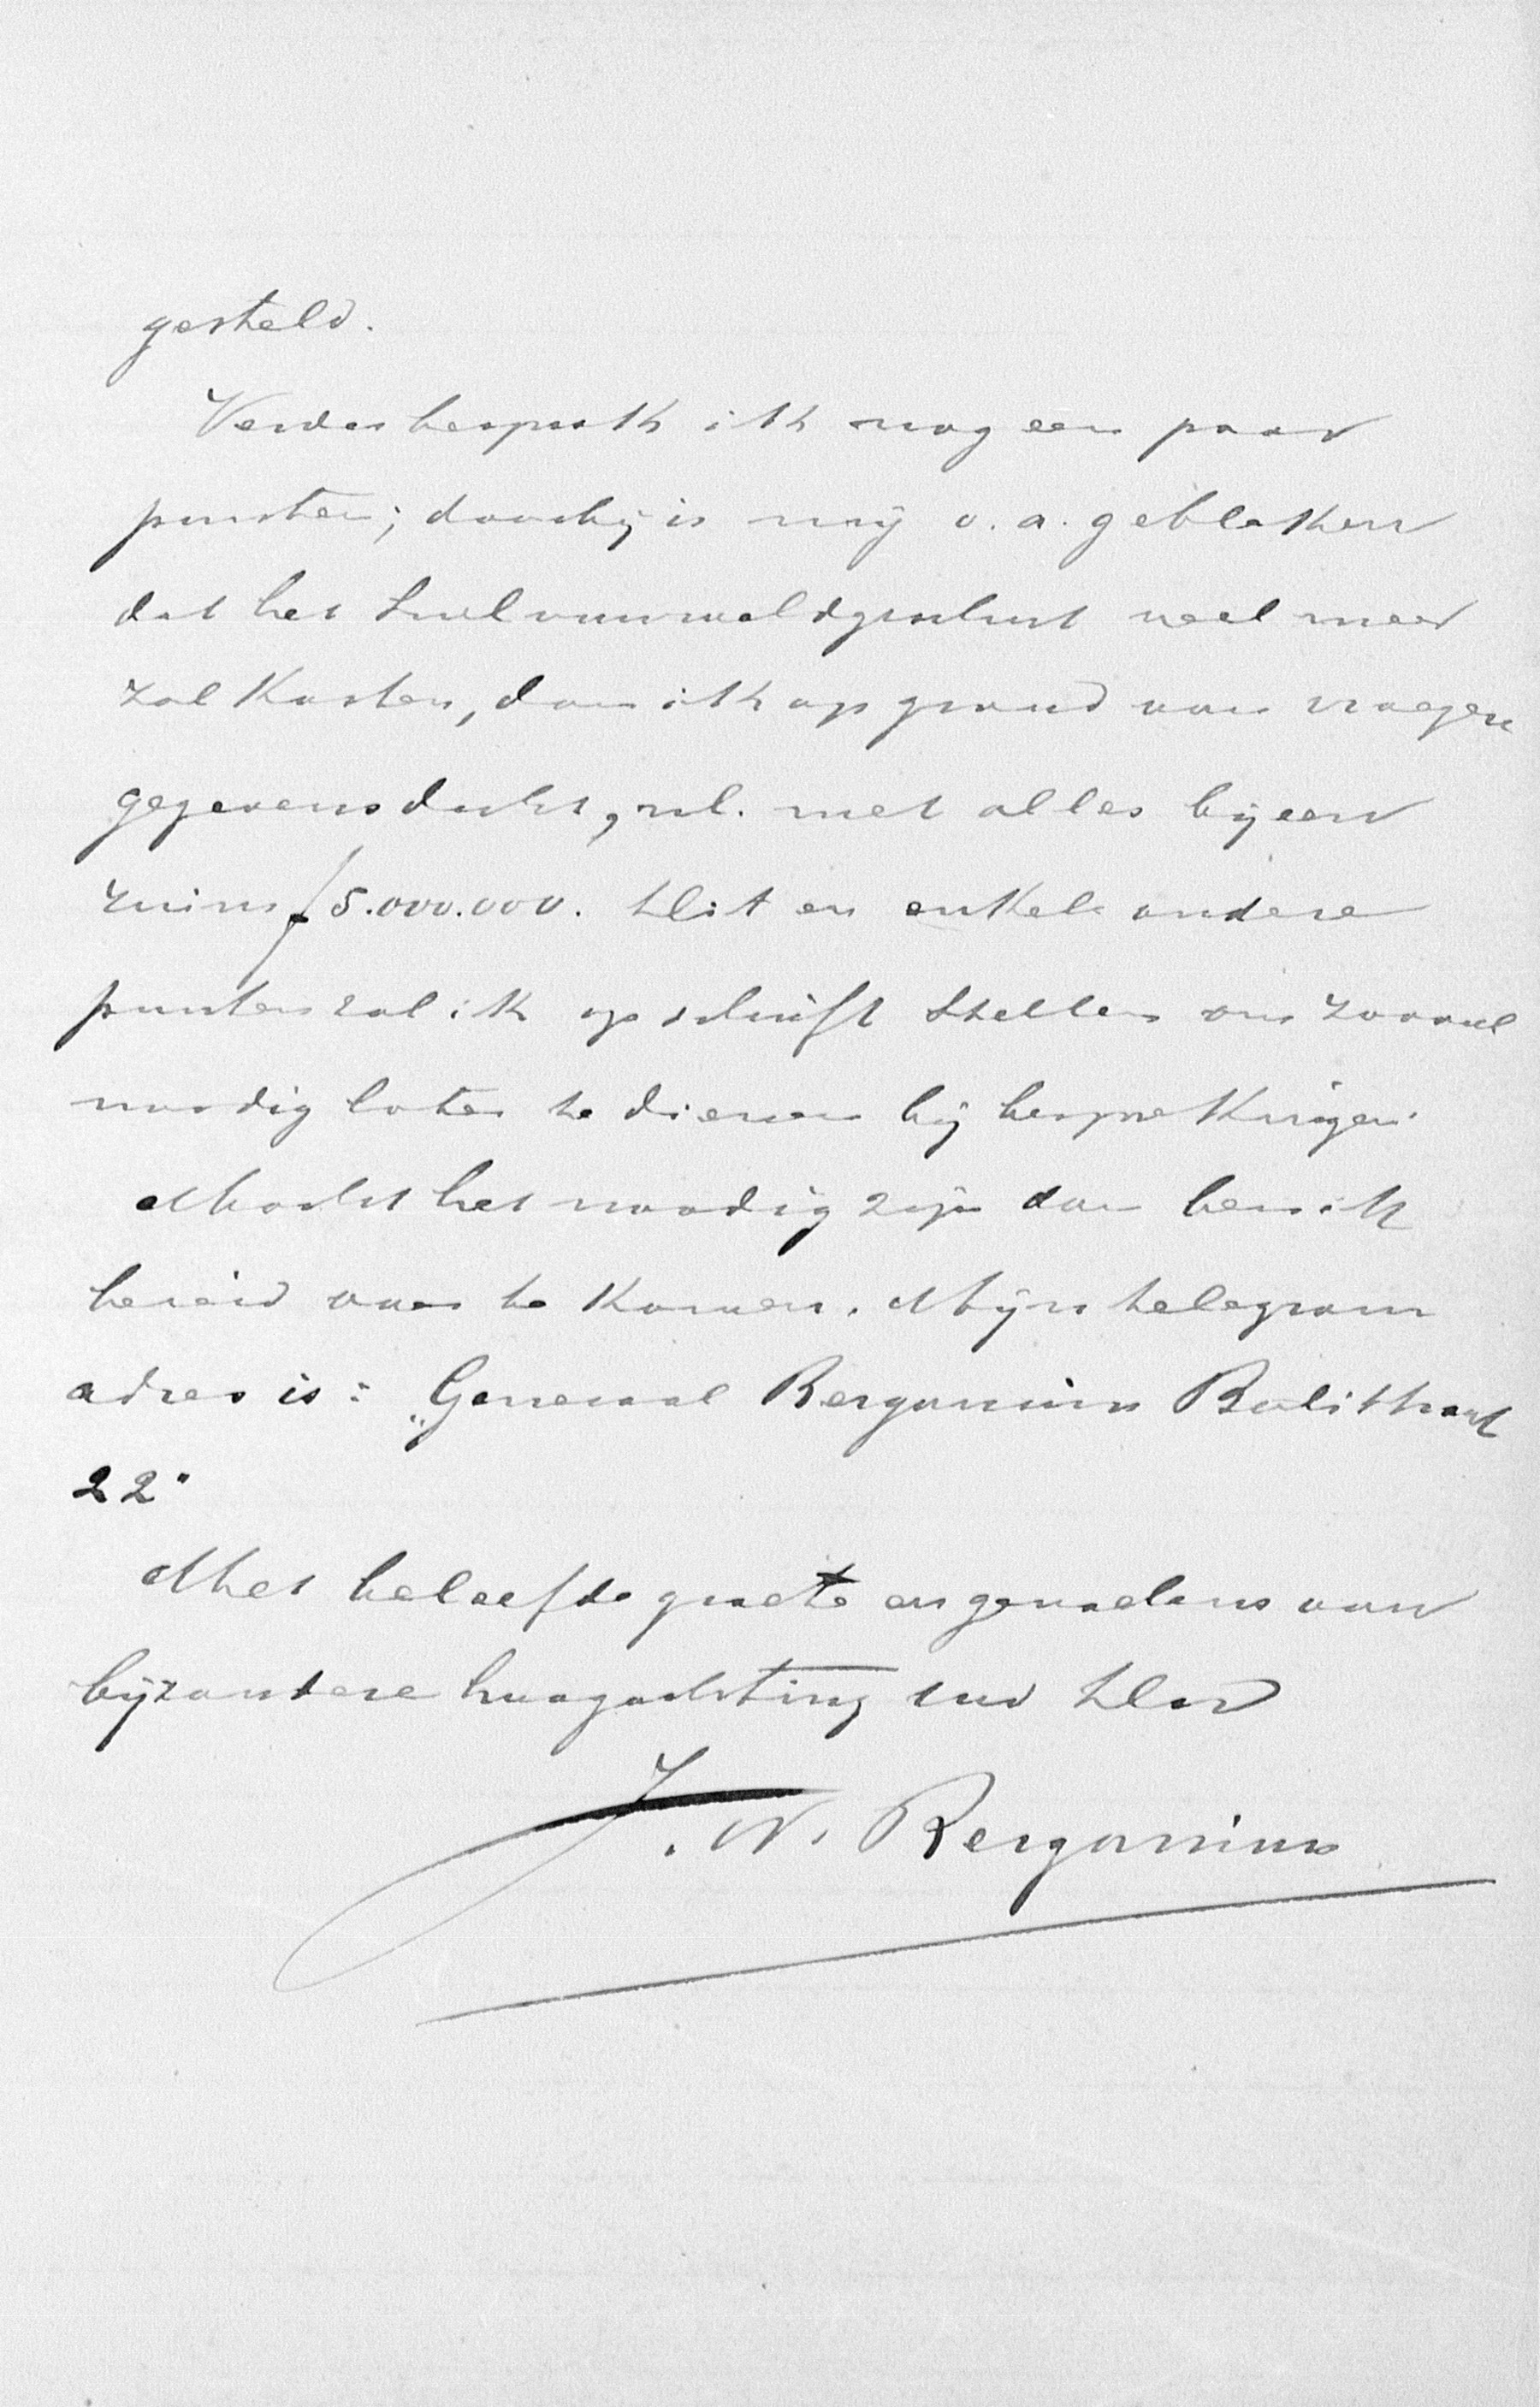 gesteld.
Verder besprak ik nog een paar
punten; daarbij is mij o.a. gebleken
dat het veel meer
zal kosten, dan ik op grond van vroegere
gegevens dacht, nl. met alles bijeen
ruim f 5.000.000. Dit en enkele andere
punten zal ik op schrift stellen om zooveel
noodig later te dienen bij besprekingen.
Mocht het noodig zijn dan ben ik
bereid over te komen. Mijn telegram
adres is: „Generaal Bergansius Balistraat
22"
Met beleefde groete en gevoelens van
bijzondere hoogachting
J. W. Bergansius